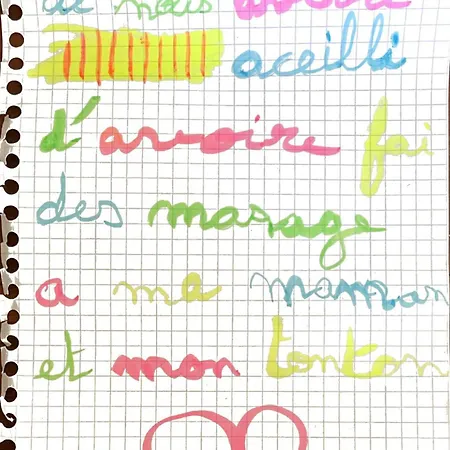 de nous avoire
aceilli
d'arvoire fai
des masage
a ma maman
et mon tonton